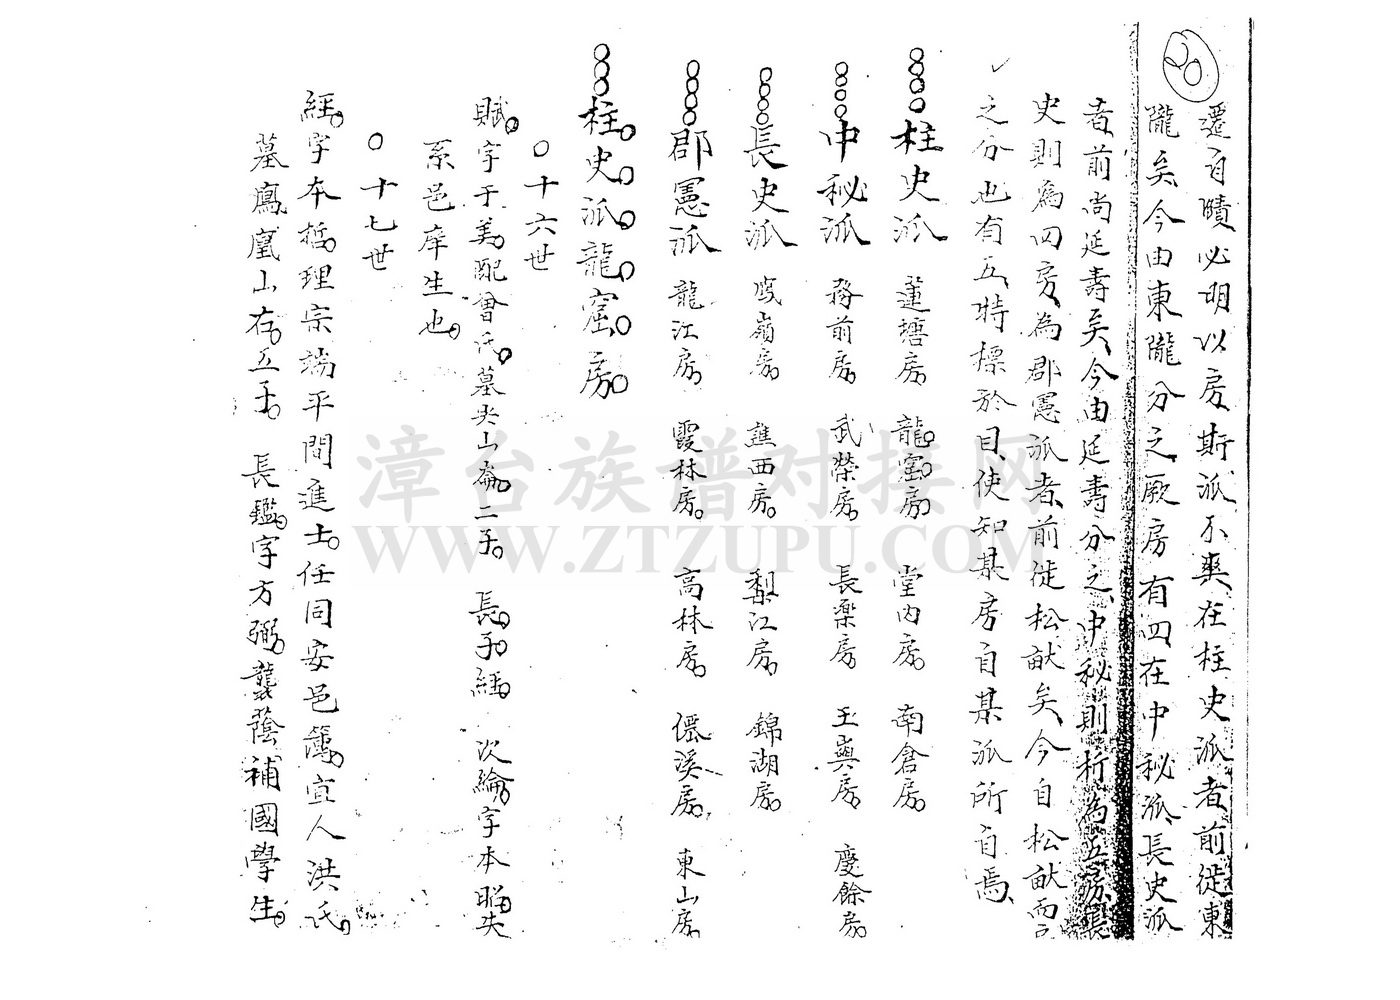 20
遷自賾必明以房斯派不爽在柱史派者前徙東
隴矣今由東隴分之厥房有四在中秘派長史派
者前尚延壽矣今由延壽分之中秘則析為五房長
史則為四房為郡憲派者前徙松猷矣今自松猷而
之分也有五特標於目使知某房自某派所自焉
柱史派 蓮塘房 龍窟房 堂內房 南倉房
中秘派 務前房 武榮房 長樂房 玉奧房 慶餘房
長史派 嶺房 西房 梨江房 錦湖房
郡憲派 龍江房 霞林房 高林房 僊溪房 東山房
柱史派龍窟房
十六世
賦字于美配曾氏墓尖山崙二子 長子經 次綸字本聰失
系邑庠生也
十七世
經字本哲理宗端平間進士任同安邑簿宜人洪氏
墓鳳凰山右五子 長鑑字方弼襲蔭補國學生
漳台族谱对接网
WWW.ZTZUPU.COM